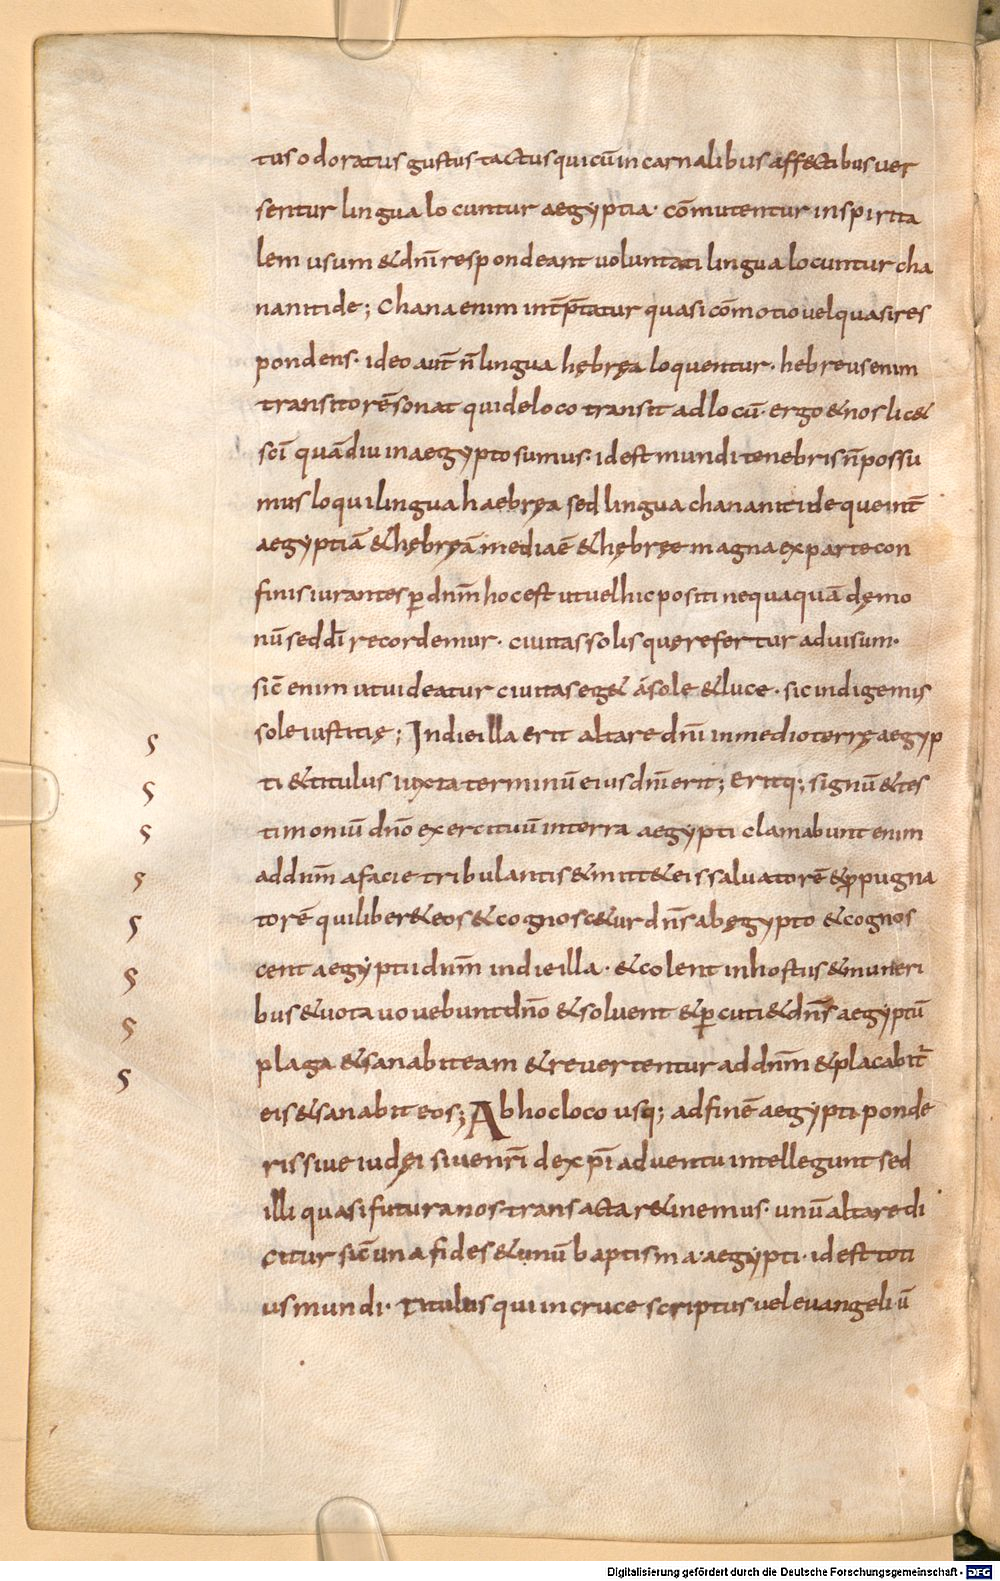 tus odoratus gustus tactus qui cū in carnalibus affectibus ver
sentur lingua locuntur aegyptia· cōmutentur in spirita
lem usum & dnī respondeant voluntati lingua locuntur cha
nanitide; Chana enim int̄p̄tatur quasi cōmotio vel quasi res
pondens· ideo aut̄ n̄ lingua hębręa loquentur· hebreus enim
transitorē sonat qui de loco transit ad locū· ergo & nos lic&
scī quādiu in aegypto sumus· id est mundi tenebris n̄ possu
mus loqui lingua haebręa sed lingua chananitide que int̄
aegyptiā & hębręā media ē & hębręe magna ex parte con
finis iurantes p̄ dnm̄ hoc est ut vel hic positi nequaquā dęmo
nū sed dī recordemur· civitas solis quę refertur ad visum·
sic̄ enim ut videatur civitas eg& a sole & luce· sic indigemus
sole iustitię; In die illa erit altare dnī in medio terrę aegyp
ti & titulus iuxta terminū eius dnī erit; Eritq; signū & tes
timoniū dno exercituū in terra aegypti clamabunt enim
ad dnm̄ a facie tribulantis & mitt& eis salvatorē & ppugna
torē qui liber& eos & cognosc&ur dns ab ęgypto & cognos
cent aegyptii dnm̄ in die illa· & colent in hostiis & muneri
bus & vota vovebunt dno & solvent & p̄cuti& dns aegyptū
plaga & sanabit eam & revertentur ad dnm̄ & placabit̄
eis & sanabit eos; Ab hoc loco usq; ad finē aegypti ponde
ris sive iudęi sive nrī de xpī adventu intellegunt sed
illi quasi futura nos transacta r&inemus· unū altare di
citur sic̄ una fides & unū baptisma· aegypti· id est toti
us mundi· Titulus qui in cruce scriptus vel evangeliū
Digitalisierung gefördert durch die Deutsche Forschungsgemeinschaft - DFG